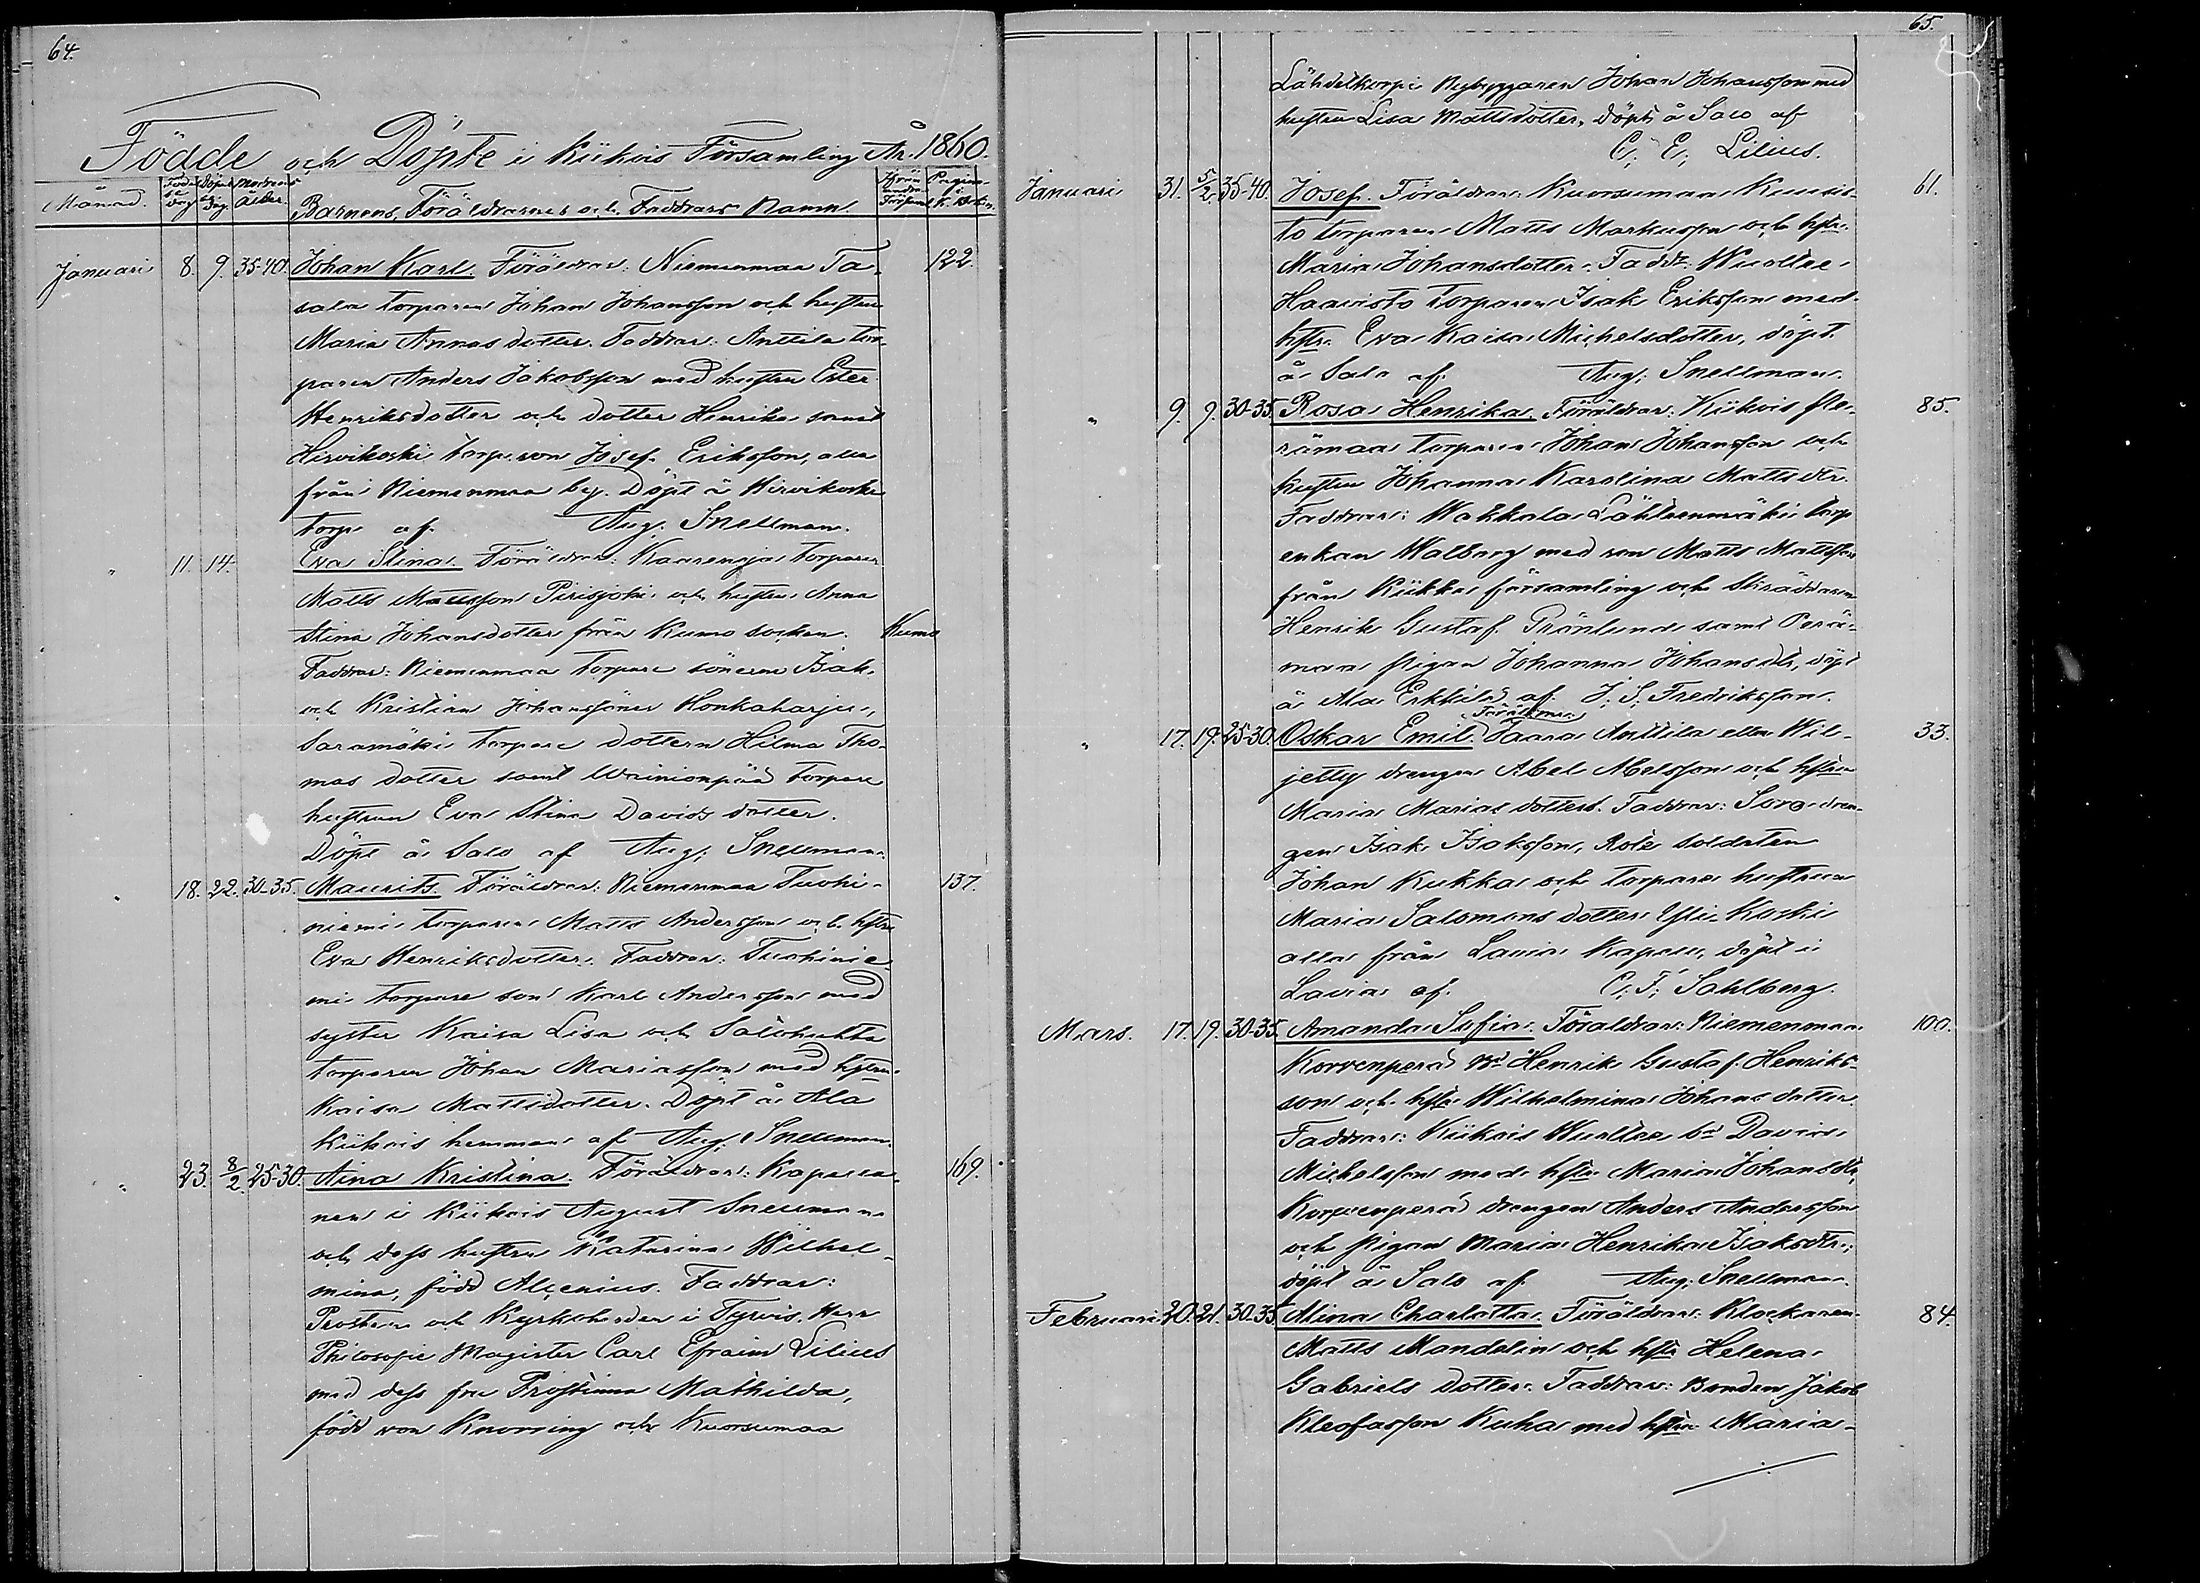 64.
Födde och Döpte i Kiikois Församling År 1860.
Månad. Födelse Dag Döpelse Dag. Modrens Ålder. Barnens, Föräldrarnes och Faddrars Namn. Ifrån andra Församl. Pagina i K. Boken.
Januari 8. 9. 35-40. Johan Karl. Föräldrar: Niemenmaa Ta- 122.
sala torparen Johan Johansson och hustru
Maria Annasdotter. Faddrar: Anttila tor-
paren Anders Jakobsson med hustru Ester
Henriksdotter och dotter Henrika samt
Hirvikoski torp. son Josef Eriksson, alla
från Niemenmaa by. Döpt å Hirvikoski
torp af Aug. Snellman.
" 11. 14. Eva Stina. Föräldrar: Kaarenoja torparen
Matts Mattsson Piirisjoki och hustru Anna
Stina Johansdotter från Kumo socken. Kumo
Faddrar: Niemenmaa torpare sönerne Isak
och Kristian Johanssöner Honkaharju,
Saramäki torpare dottern Hilma Tho-
mas dotter samt Wainionpää torpare
hustrun Eva Stina Davids dotter.
Döpt å Salo af Aug. Snellman.
" 18. 22. 30-35. Maurits. Föräldrar: Niemenmaa Tuohi- 137.
niemi torparen Matts Andersson och hstru
Eva Henriksdotter. Faddrar: Tuohinie-
mi torpare son Karl Andersson med
syster Kaisa Lisa och Salohuhta
torparen Johan Mariasson med hstru
Kaisa Mattsdotter. Döpt å Ala
Kiikois hemman af Aug. Snellman.
" 23. 8/2. 25-30. Aina Kristina. Föräldrar: Kapella- 169.
nen i Kiikois August Snellman
och dess hustru Katarina Wilhel-
mina, född Alcenius. Faddrar:
Prosten och Kyrkoherden i Tyrvis, Herr
Philosofie Magister Carl Efraim Lilius
med dess fru Prostinna Mathilda,
född von Knorring och Kuorsumaa
65.
Lähdekorpi Nybyggaren Johan Johansson med
hustru Lisa Mattsdotter, döpt å Salo af
C. E. Lilius.
Januari 31. 5/2. 35-40. Josef. Föräldrar: Kuorsumaa Kuusis- 61.
to torparen Matts Markusson och hstr.
Maria Johansdotter. Faddr: Wuoltee
Haavisto torparen Isak Eriksson med
hstr. Eva Kaisa Michelsdotter, döpt
å Salo af Aug. Snellman.
" 9. 9. 30-35. Rosa Henrika. Föräldrar: Kiikois Pe- 85.
rämaa torparen Johan Johansson och
hustru Johanna Karolina Matts dtr.
Faddrar: Wakkala Lähteenmäki torp
enkan Walborg med son Matts Mattsson
från Kiikka församling och Skräddaren
Henrik Gustaf Grönlund samt Perä-
maa pigan Johanna Johansdtr, döpt
å Ala Erkkilä af J. S. Fredriksson.
Föräldrar:
" 17. 19. 25-30. Oskar Emil. Jaara Anttila eller Wil- 33.
jetty drengen Abel Abelsson och hstru
Maria Mariasdotter. Faddrar: Sora dren-
gen Isak Isaksson, Rote soldaten
Johan Kukka och torpare hustrun
Maria Salomons dotter Yli-Koski
alla från Lavia Kapell, döpt i
Lavia af C. F. Sahlberg.
Mars. 17. 19. 30-35. Amanda Sofia. Föräldrar: Niemenmaa 100.
Korvenperä bd Henrik Gustaf Henriks-
son och hstr Wilhelmina Johans dotter.
Faddrar: Kiikois Wuoltee bd David
Michelsson med hstr Maria Johansdtr,
Korvenperä drengen Anders Andersson
och pigan Maria Henrika Isaksdtr;
döpt å Salo af Aug. Snellman.
Februari 20. 21. 30-35. Alina Charlotta. Föräldrar: Klockaren 84.
Matts Mandelin och hstr Helena
Gabriels dotter. Faddrar: Bonden Jakob
Kleofasson Kuha med hstru Maria-